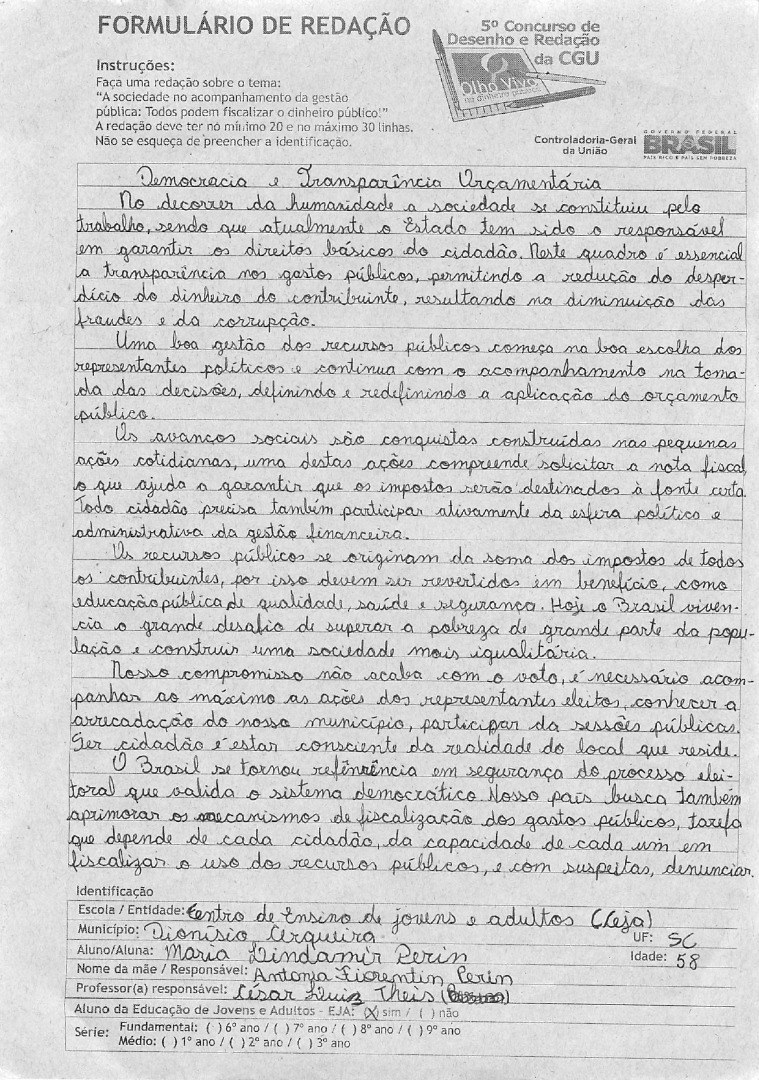 FORMULÁRIO DE REDAÇÃO
5º Concurso de
Desenho e Redação
da CGU
Olho Vivo
no dinheiro público
Instruções:
Faça uma redação sobre o tema:
"A sociedade no acompanhamento da gestão
pública: Todos podem fiscalizar o dinheiro público!"
A redação deve ter no mínimo 20 e no máximo 30 linhas.
Não se esqueça de preencher a identificação.
Controladoria-Geral
da União
GOVERNO FEDERAL
BRASIL
PAÍS RICO É PAÍS SEM POBREZA
Democracia e Transparência Orçamentária
No decorrer da humanidade a sociedade se constituiu pelo
trabalho, sendo que atualmente o Estado tem sido o responsável
em garantir os direitos básicos do cidadão. Neste quadro é essencial
a transparência nos gastos públicos, permitindo a redução do desper-
dício do dinheiro do contribuinte, resultando na diminuição das
fraudes e da corrupção.
Uma boa gestão dos recursos públicos começa na boa escolha dos
representantes políticos e continua com o acompanhamento na toma-
da das decisões, definindo e redefinindo a aplicação do orçamento
público.
Os avanços sociais são conquistas construídas nas pequenas
ações cotidianas, uma destas ações compreende solicitar a nota fiscal,
o que ajuda a garantir que os impostos serão destinados à fonte certa.
Todo cidadão precisa também participar ativamente da esfera político e
administrativa da gestão financeira.
Os recursos públicos se originam da soma dos impostos de todos
os contribuintes, por isso devem ser revertidos em benefício, como
educação pública de qualidade, saúde e segurança. Hoje o Brasil viven-
cia o grande desafio de superar a pobreza de grande parte da popu-
lação e construir uma sociedade mais igualitária.
Nosso compromisso não acaba com o voto, é necessário acom-
panhar ao máximo as ações dos representantes eleitos, conhecer a
arrecadação do nosso município, participar da sessões públicas.
Ser cidadão é estar consciente da realidade do local que reside.
O Brasil se tornou refinrência em segurança do processo elei-
toral que valida o sistema democrático. Nosso país busca também
aprimorar os mecanismos de fiscalização dos gastos públicos, tarefa
que depende de cada cidadão, da capacidade de cada um em
fiscalizar o uso dos recursos públicos, e com suspeitas, denunciar.
Identificação
Escola / Entidade: Centro de Ensino de jovens e adultos (Ceja)
Município: Dionísio Cerqueira UF: SC
Aluno/Aluna: Maria Lindamir Perin Idade: 58
Nome da mãe / Responsável: Antonja Fiorentin Perin
Professor(a) responsável: César Luiz Theis
Aluno da Educação de Jovens e Adultos - EJA: (X) sim / ( ) não
Série: Fundamental: ( ) 6º ano / ( ) 7º ano / ( ) 8º ano / ( ) 9º ano
Médio: ( ) 1º ano / ( ) 2º ano / ( ) 3º ano